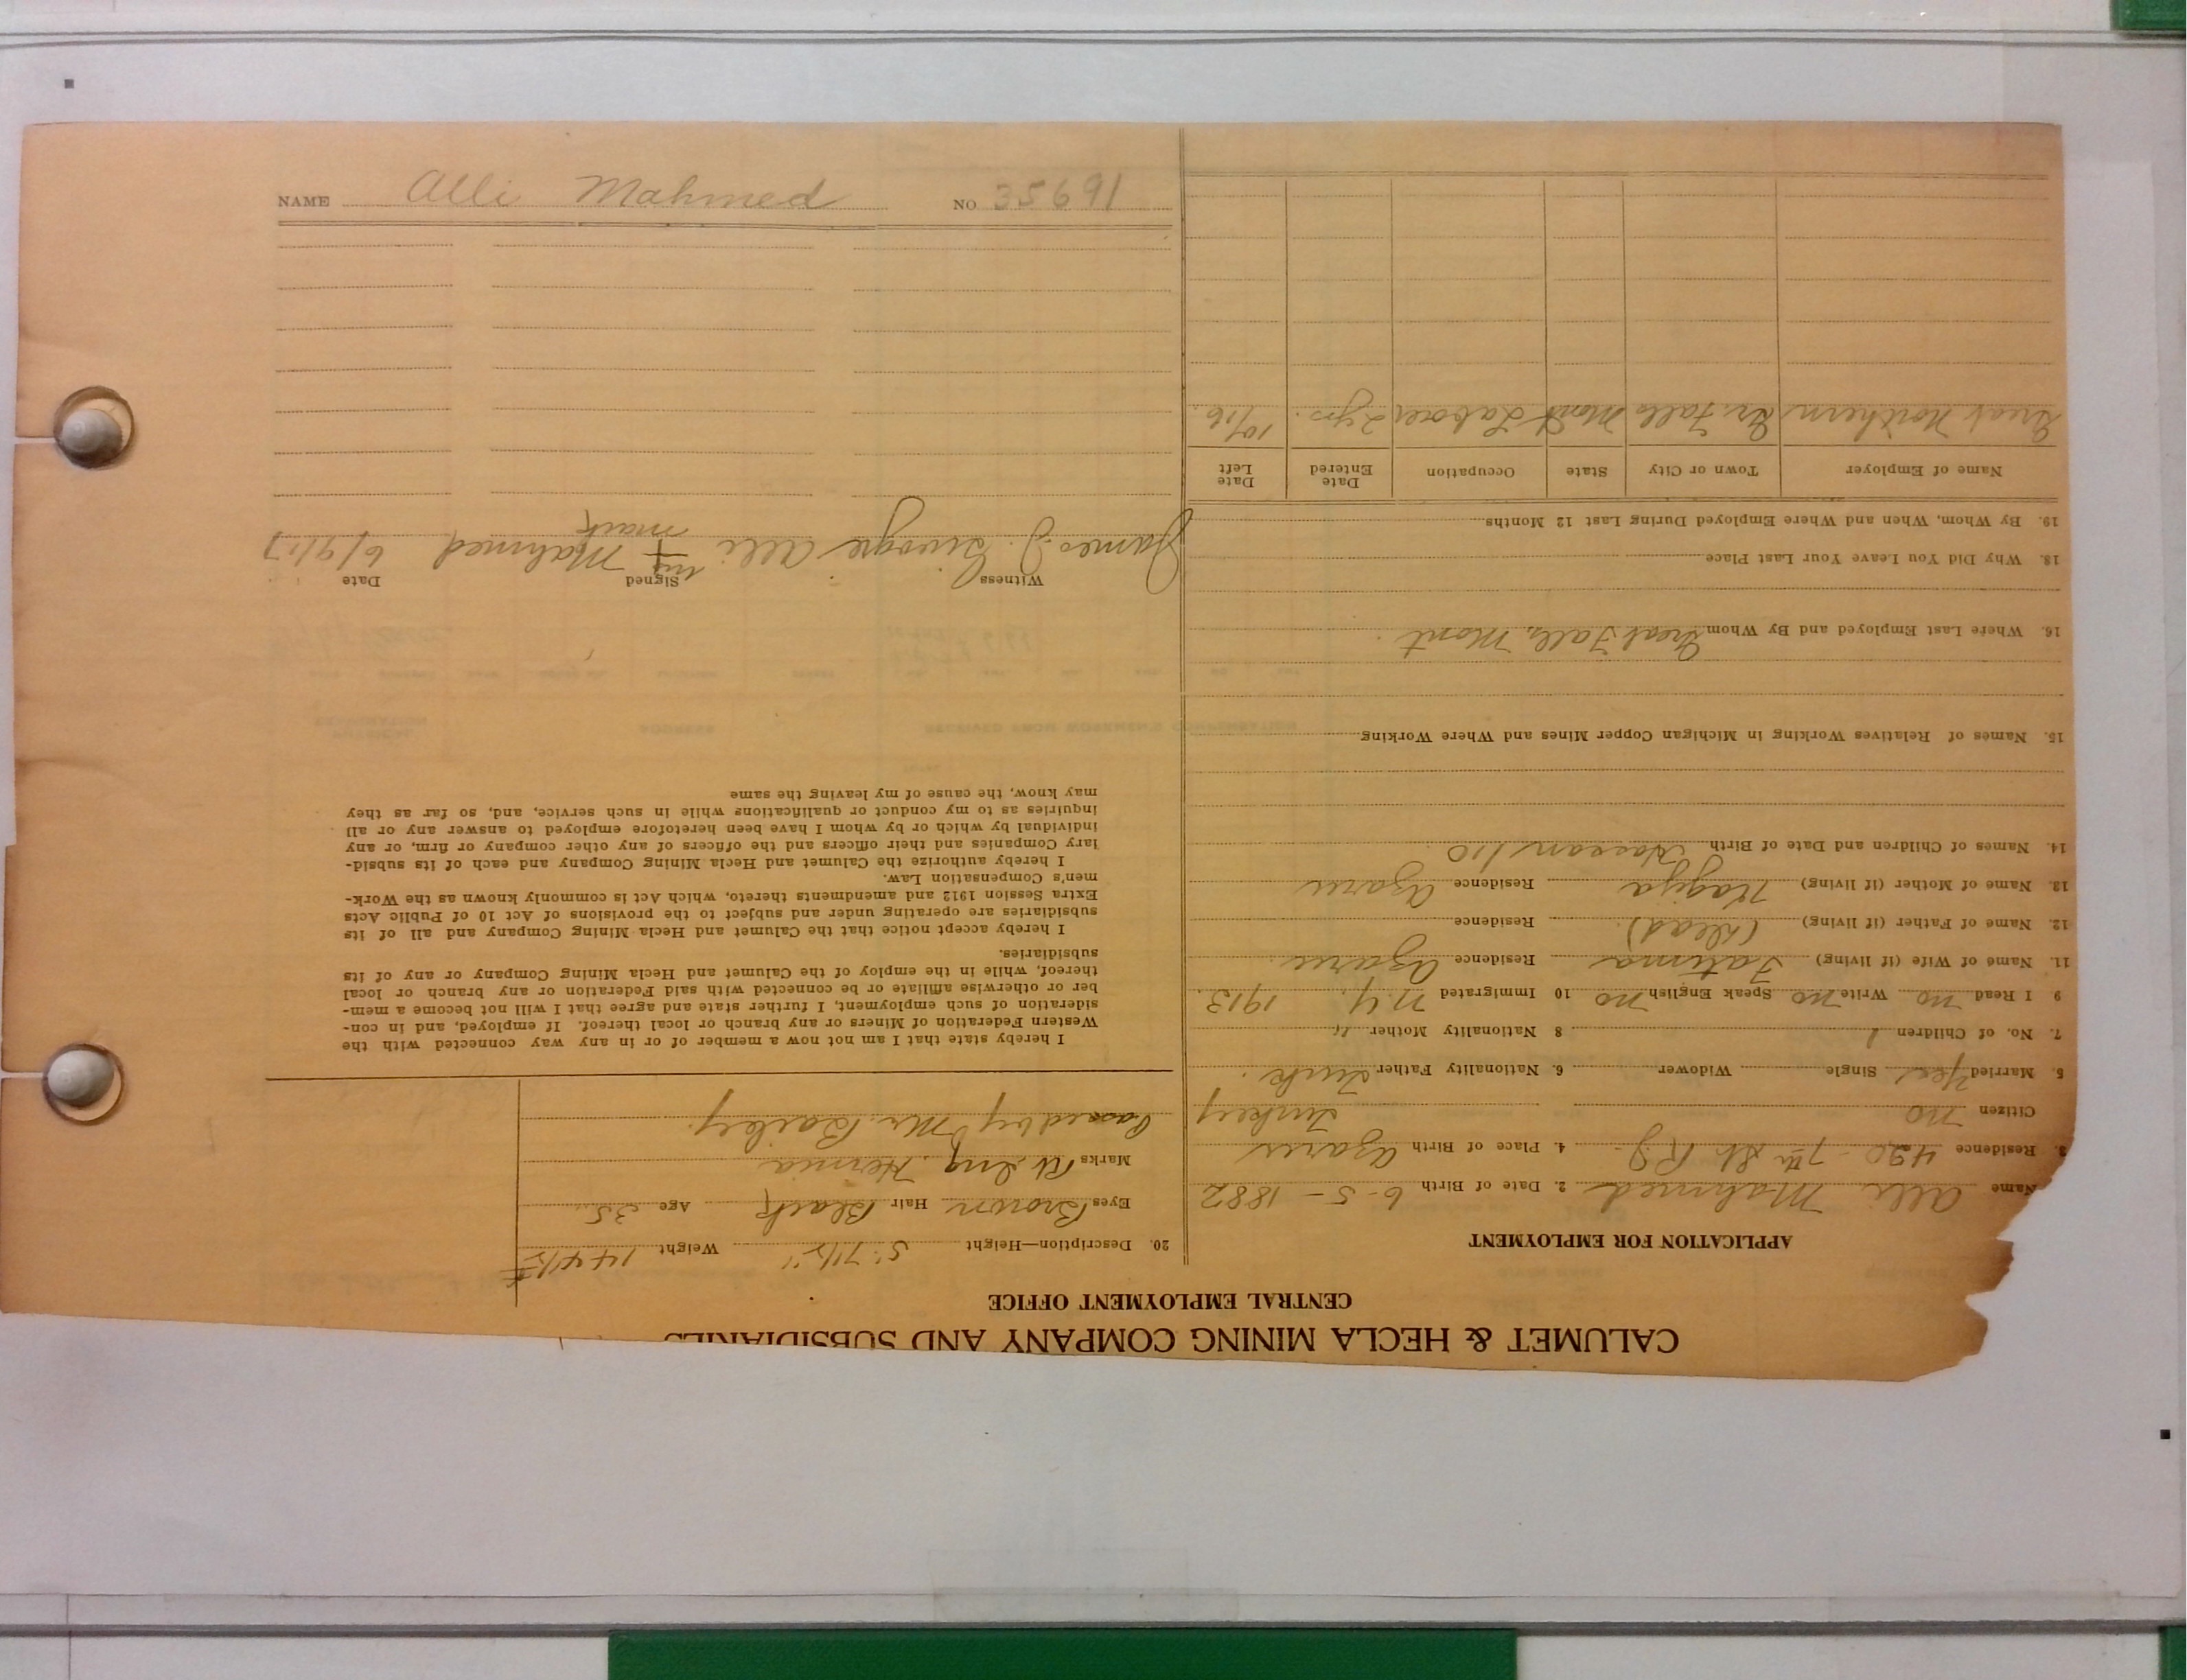 CALUMET & HECLA MINING COMPANY AND SUBSIDIARIES
CENTRAL EMPLOYMENT OFFICE
APPLICATION FOR EMPLOYMENT
Name Alli Mahmed 2. Date of Birth 6-5-1882
3. Residence 420-7th St. RJ. 4. Place of Birth Azares
Citizen no Turkey
5. Married Yes Single Widower 6. Nationality Father Turk.
7. No. of Children 1 8 Nationality Mother "
9 I Read no Write no Speak English no 10 Immigrated N.Y. 1913.
11. Name of Wife (if living) Fatima Residence Azares.
12. Name of Father (if living) (dead). Residence
13. Name of Mother (if living) Residence Azares
14. Names of Children and Date of Birth Hassan 1/10
15. Names of Relatives Working in Michigan Copper Mines and Where Working
16. Where Last Employed and By Whom Great Falls, Mont.
18. Why Did You Leave Your Last Place
19. By Whom, When and Where Employed During Last 12 Months
Name of Employer Town or City State Occupation Date Entered Date Left
Great Northern Gr. Falls Mont Laborer 2 yrs. 10/16.
20. Description—Height 5' 7 1/2" Weight 144 1/2 #
Eyes Brown Hair Black Age 35
Marks Rt. Ing. Hernia
Passed by Mr. Bailey.
I hereby state that I am not now a member of or in any way connected with the
Western Federation of Miners or any branch or local thereof. If employed, and in con-
sideration of such employment, I further state and agree that I will not become a mem-
ber or otherwise affiliate or be connected with said Federation or any branch or local
thereof, while in the employ of the Calumet and Hecla Mining Company or any of its
subsidiaries.
I hereby accept notice that the Calumet and Hecla Mining Company and all of its
subsidiaries are operating under and subject to the provisions of Act 10 of Public Acts
Extra Session 1912 and amendments thereto, which Act is commonly known as the Work-
men's Compensation Law.
I hereby authorize the Calumet and Hecla Mining Company and each of its subsid-
iary Companies and their officers and the officers of any other company or firm, or any
individual by which or by whom I have been heretofore employed to answer any or all
inquiries as to my conduct or qualifications while in such service, and, so far as they
may know, the cause of my leaving the same
Witness Signed Date
James J. Alli his + mark Mahmed 6/9/17
NAME Alli Mahmed NO 35691